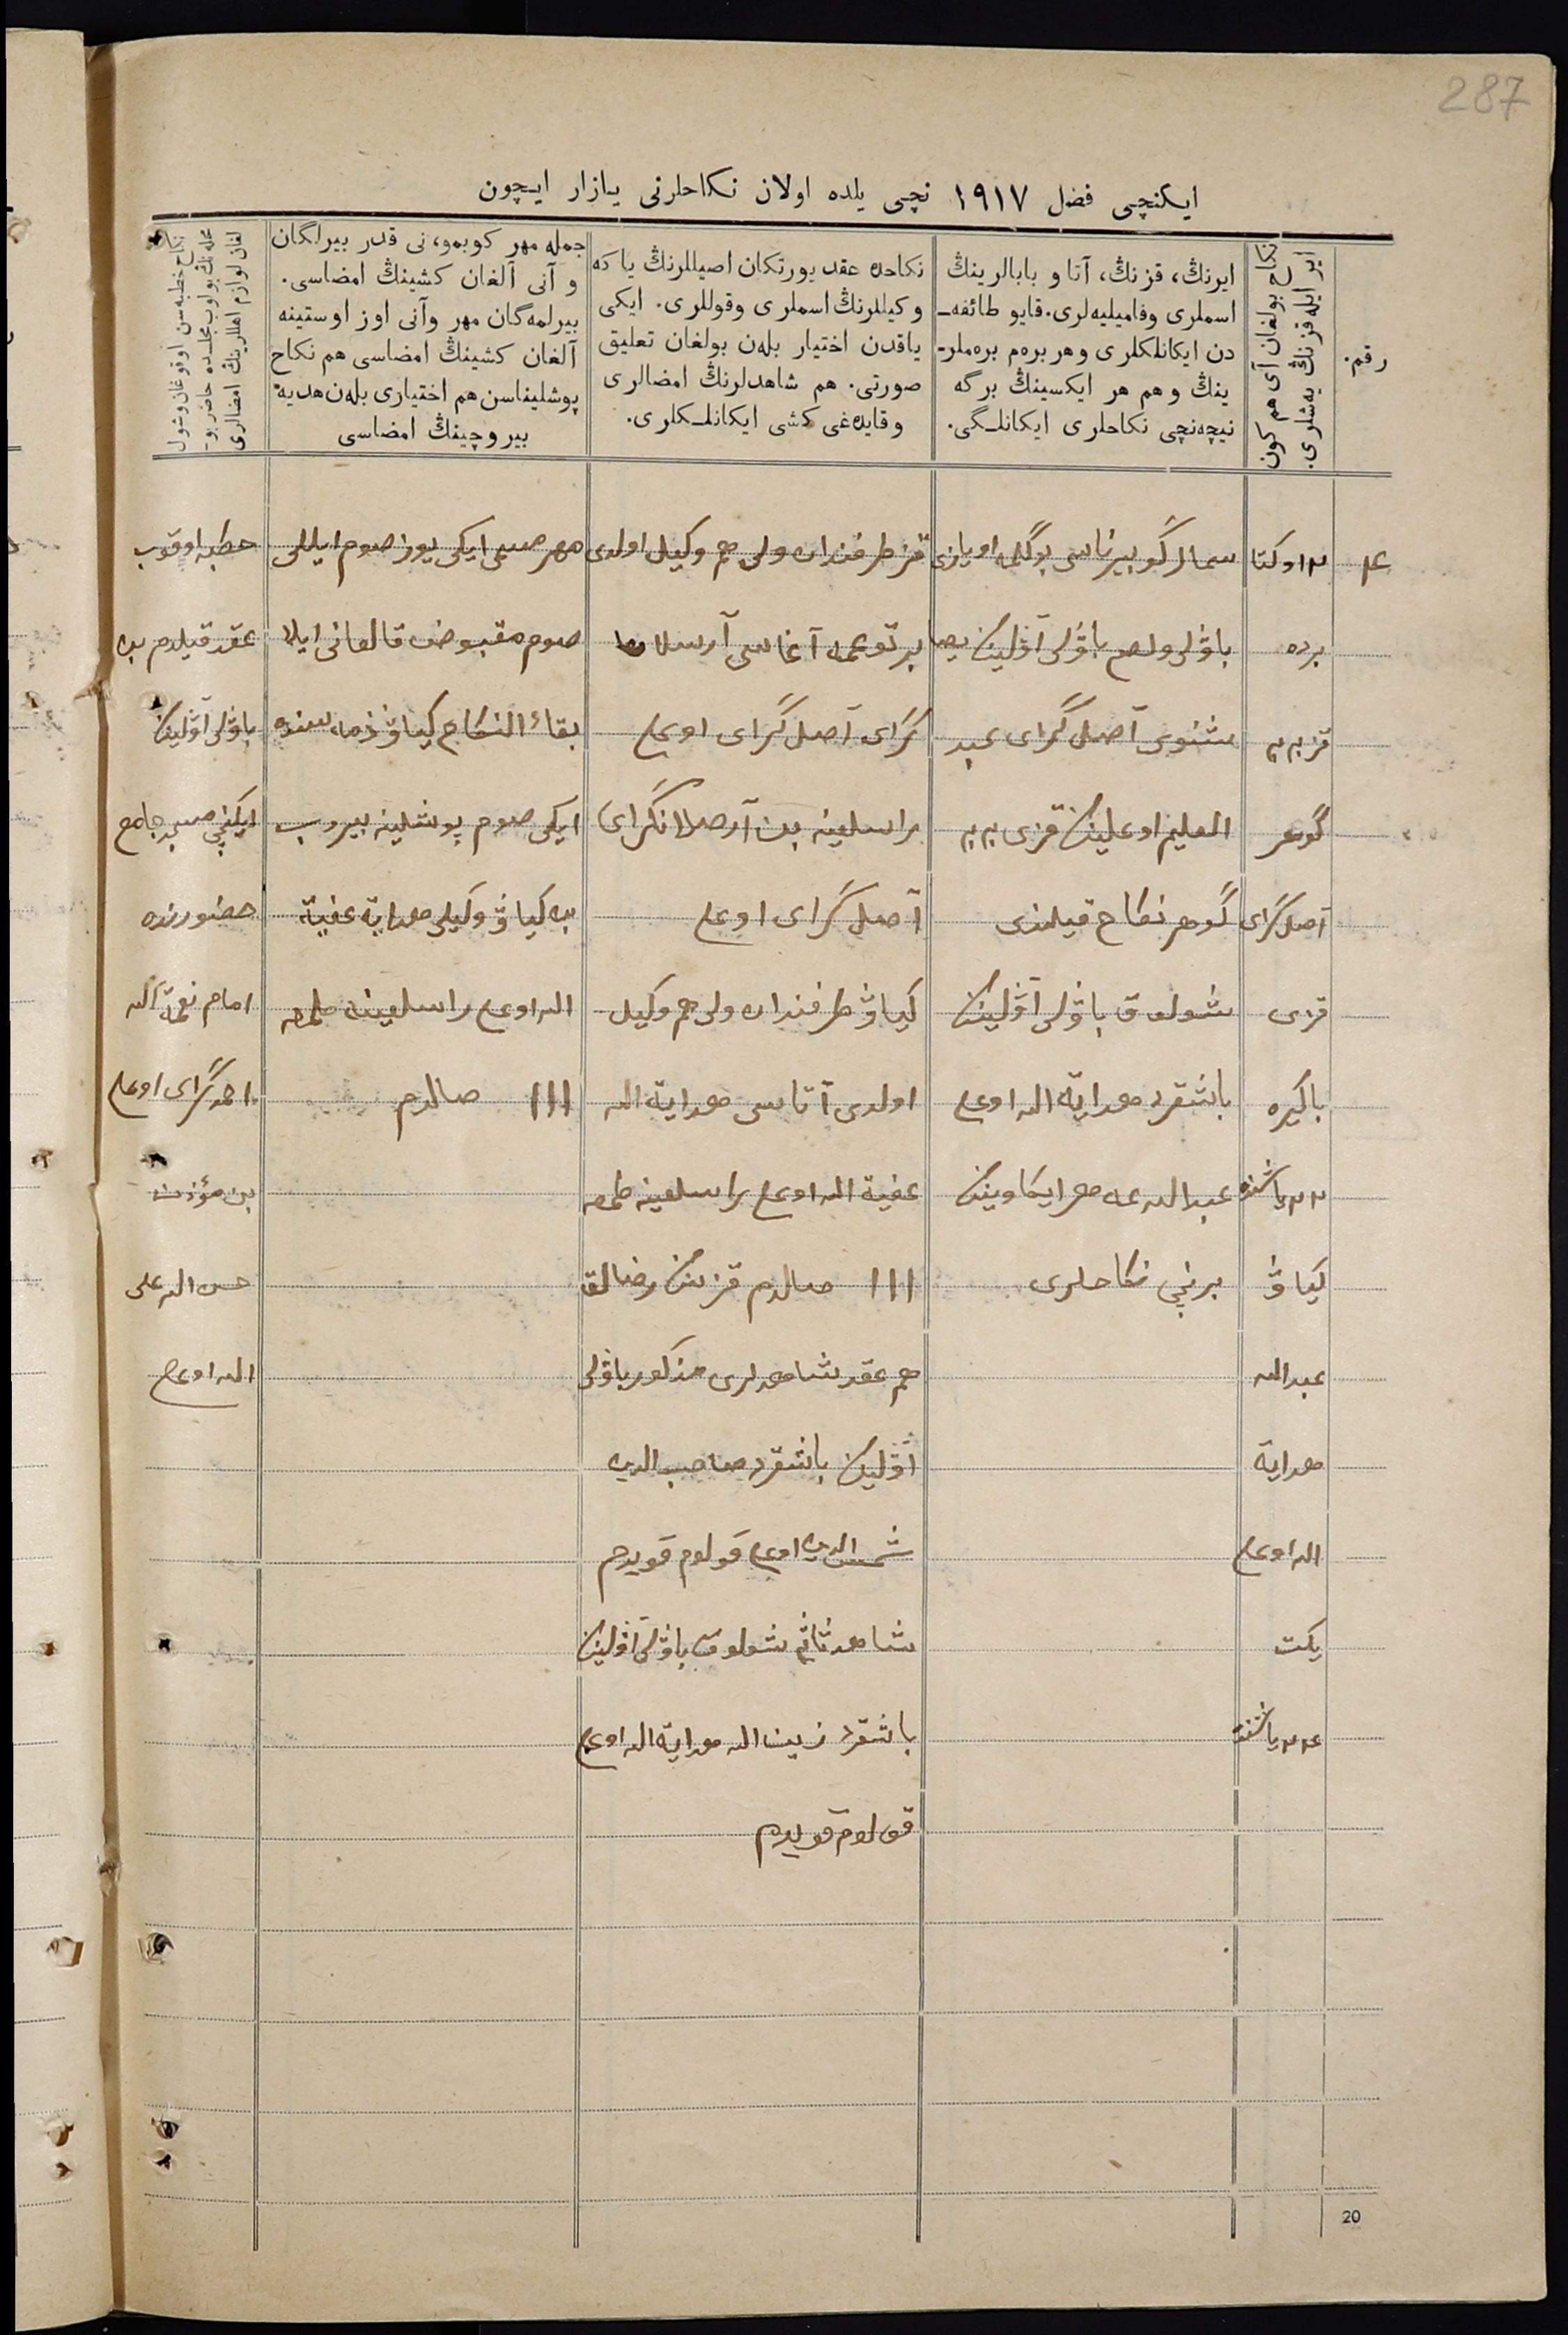 287
ایکنچی فضل ۱۹۱۷ نچی یلده اولان نکاحلرنی یازار ایچون
رقم.
نکاح بولغان آی هم کون
ایر ایله قزنڭ یه‌شلری.
ایرنڭ، قزنڭ، آتا و بابالرینڭ
اسملری وفامیلیه‌لری. قایو طائفه‌ـ
دن ایکانلکلری و هر بره‌م بره‌ملرـ
ینڭ و هم هر ایکسینڭ برگه
نیچه‌نچی نکاحلری ایکانلـگی.
نکاحده عقد یورتکان اصیللرنڭ یا که
و کیللرنڭ اسملری وقوللری. ایکی
یاقدن اختیار بله‌ن بولغان تعلیق
صورتی. هم شاهدلرنڭ امضالری
و قایده‌غی کشی ایکانلـکلری.
جمله مهر کوبمو، نی قدر بیرلگان
و آنی آلغان کشینڭ امضاسی.
بیرلمه‌گان مهر وآنی اوز اوستینه
آلغان کشینڭ امضاسی هم نکاح
پوشلیناسن هم اختیاری بله‌ن هدیه
بیروچینڭ امضاسی
نکاح خطبه‌سن اوقوغان وشول
محله‌نڭ بولوب مجلسده حاضر بو-
لغان لوازم اهللرینڭ امضالری
۴
۲ اوکتا
برده
قز
گوهر
آصل گرای
قزی
باکیره
۲۲ یاشنده
کیاۋ
عبدالله
هدایة
الله اوغلی
یکت
۲۴ یاشنده
سمار گوبیرناسی بوگلمه اویازی
باۋلی ولصم باۋلی آۋلینڭ
آصل گرای عبد
العلیم اوغلینڭ قزی
گوهر نکاح قیلندی
شولوق باۋلی آۋلینڭ
باشقرد هدایة الله اوغلی
عبدالله غه
برنچی نکاحلری
قز طرفندان ولی هم وکیل اولدی
برتوغمه آغاسی آرسلان
گرای آصل گرای اوغلی
براسلعینه بن آرصلانگرای
آصل گرای اوغلی
کیاۋ طرفندان ولی هم وکیل
اولدی آتاسی هدایة الله
عفیة الله اوغلی براسلعینه طمغه
۱۱۱ صالدم قزنڭ رضالق
هم عقد شاهدلری مذکور باۋلی
آۋلینڭ باشقرد صاحب الدین
شمس الدین اوغلی قولوم قویدم
شاهد ثانی شولوق باۋلی آۋلینڭ
باشقرد زینب الله هدایة الله اوغلی
قولوم قویدم
مهر مسمی ایکی یوز صوم ایللی
صوم مقبوض قالغانی ایلا
بقاء النکاح کیاۋ ذمه‌سنده
ایکی صوم پوشلینه بیروب
بن کیاۋ وکیلی هدایة عفیة
الله اوغلی براسلعینه طمغه
۱۱۱ صالدم
خطبه اوقوب
عقد قیلدم بن
باۋلی آۋلینڭ
ایکنچی مسجد جامع
حضورنده
امام نعمة الله
احمدگرای اوغلی
بن مؤذن
حسن الله علی
الله اوغلی
20